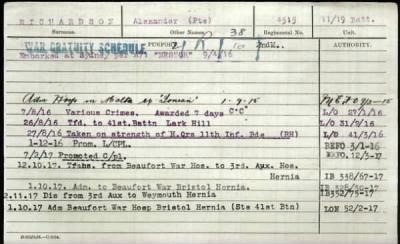 RICHARDSON Alexander (Pte) 4515 11/19 Batt.
Surname. Other Names. 38 Regimental No. Unit.
WAR GRATUITY SCHEDULE PURPORT AUTHORITY.
Embarked at Sydney per A/1 9/4/16
Adm Hosp in Malta 1-9-15
7/8/16 Various Crimes. Awarded 7 days "C" L/O 27/1/16
26/8/16 Tfd. to 41st.Battn Lark Hill L/O 31/9/16
27/8/16 Taken on strength of H.Qrs 11th Inf. Bde (RH) L/O 41/3/16
1-12-16 Prom. L/CPL. REFO 3/1-16
7/2/17 Promoted C/pl. REFO 12/3-17
12.10.17. Tfans. from Beaufort War Hos. to 3rd. Aux. Hos.
Hernia IB 338/67-17
1.10.17. Adm. to Beaufort War Bristol Hernia
2.11.17 Dis from 3rd Aux to Weymouth Hernia IB352/75-17
1.10.17 Adm Beaufort War Hosp Bristol Hernia (Sts 41st Btn) LON 52/2-17